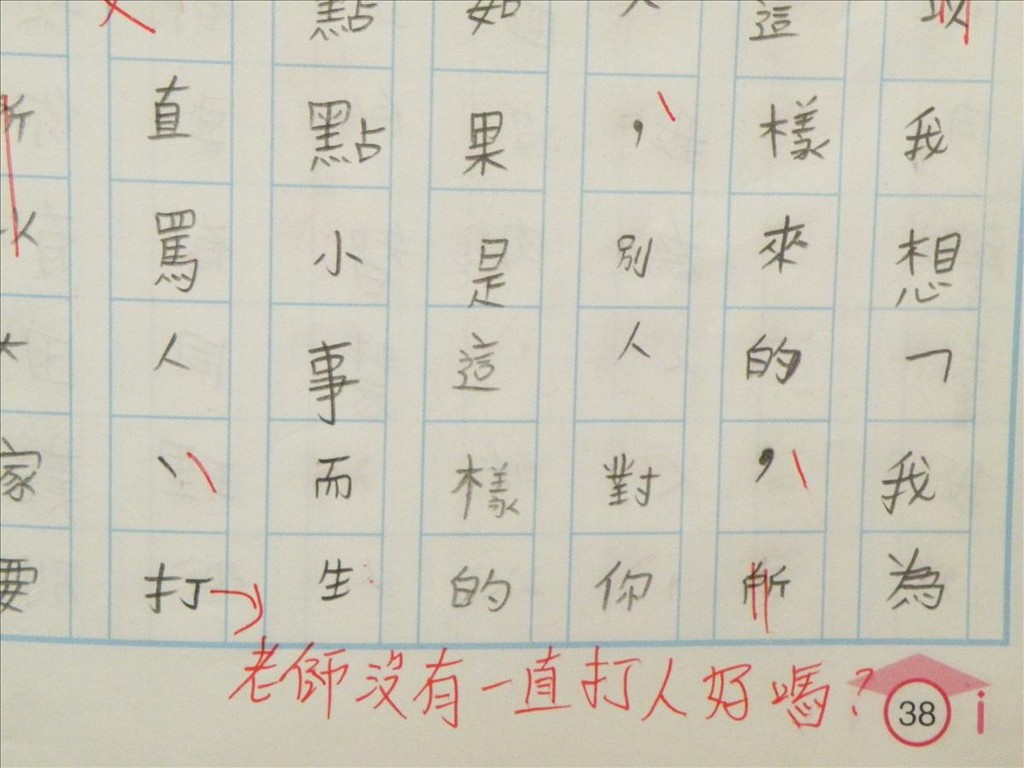 我想「我為
這樣來的，所
，別人對你
如果是這樣的
點點小事而生
直罵人、打
家要
老師沒有一直打人好嗎？
38
i